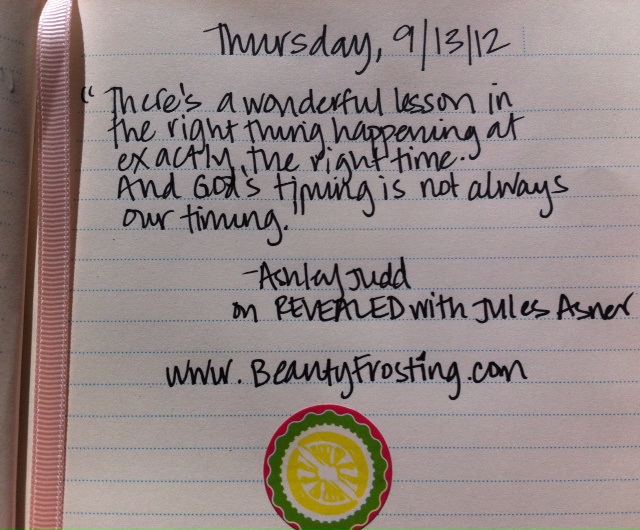 Thursday, 9/13/12
"There's a wonderful lesson in
the right thing happening at
exactly the right time.
And God's timing is not always
our timing."
-Ashley Judd
on REVEALED with Jules Asner
www.BeautyFrosting.com